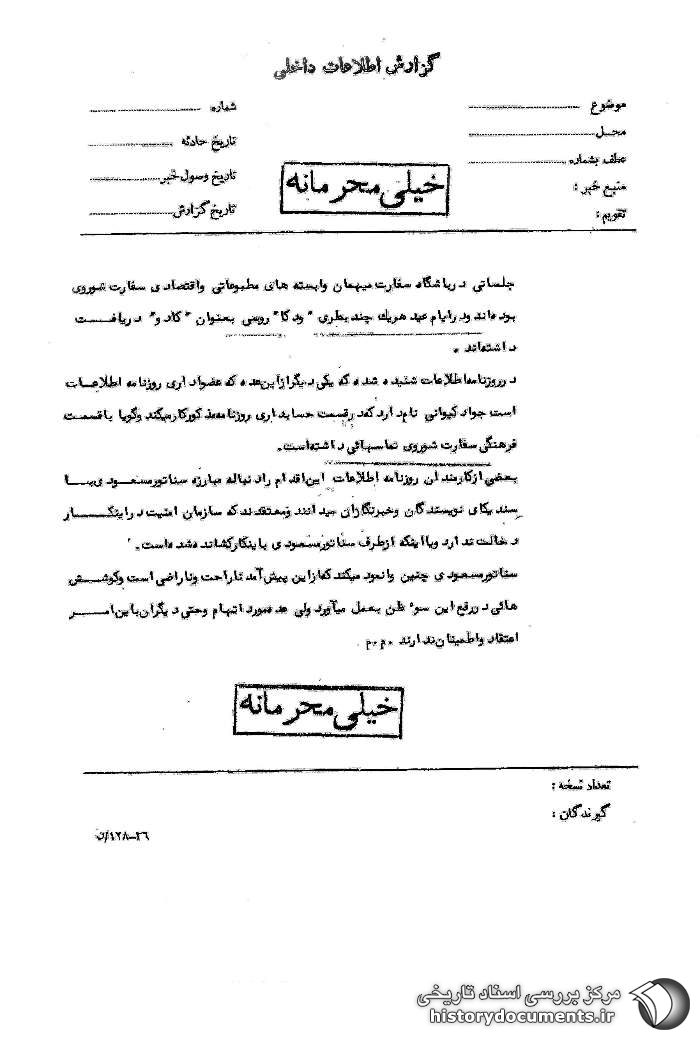 گزارش اطلاعات داخلی
موضوع
محل
عطف بشماره
منبع خبر :
تقویم :
شماره
تاریخ حادثه
تاریخ وصول خبر
تاریخ گزارش
خیلی محرمانه
جلساتی در باشگاه سفارت میهمان وابسته های مطبوعاتی واقتصادی سفارت شوروی
بوده اند ودر ایام عید هریک چند بطری "ودکا" روسی بعنوان "کادو" دریافت
داشته اند .
در روزنامه اطلاعات شنیده شده که یکی دیگر از این عده که عضو اداری روزنامه اطلاعات
است جواد کیوانی نام دارد که در قسمت حسابداری روزنامه مذکور کار میکند وگویا با قسمت
فرهنگی سفارت شوروی تماسهائی داشته است.
بعضی از کارمندان روزنامه اطلاعات این اقدام را دنباله مبارزه سناتور مسعودی با
سندیکای نویسندگان وخبرنگاران میدانند ومعتقدند که سازمان امنیت در اینکار
دخالت ندارد ویا اینکه از طرف سناتور مسعودی باینکار کشانده شده است.
سناتور مسعودی چنین وانمود میکند که از این پیش آمد ناراحت وناراضی است وکوشش
هائی در رفع این سوء ظن بعمل میآورد ولی عده مورد اتهام وحتی دیگران باین امر
اعتقاد واطمینان ندارند .م.م
خیلی محرمانه
تعداد نسخه :
گیرندگان :
۲۶-۱۲۸/ن
مرکز بررسی اسناد تاریخی
historydocuments.ir